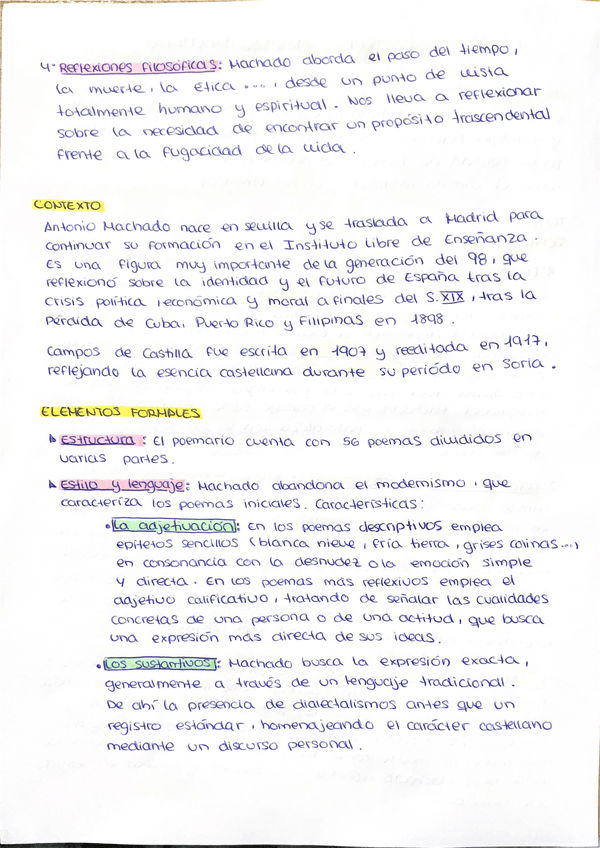 4- Reflexiones filosóficas: Machado aborda el paso del tiempo,
la muerte, la ética ..., desde un punto de vista
totalmente humano y espiritual. Nos lleva a reflexionar
sobre la necesidad de encontrar un propósito trascendental
frente a la fugacidad de la vida.
CONTEXTO
Antonio Machado nace en sevilla y se traslada a Madrid para
continuar su formación en el Instituto Libre de Enseñanza.
Es una figura muy importante de la generación del 98, que
reflexionó sobre la identidad y el futuro de España tras la
crisis política, económica y moral a finales del S. XIX, tras la
pérdida de Cuba, Puerto Rico y Filipinas en 1898.
Campos de Castilla fue escrita en 1907 y reeditada en 1917,
reflejando la esencia castellana durante su período en Soria.
ELEMENTOS FORMALES
Estructura: El poemario cuenta con 56 poemas divididos en
varias partes.
Estilo y lenguaje: Machado abandona el modernismo, que
caracteriza los poemas iniciales. Características:
• La adjetivación: En los poemas descriptivos emplea
epítetos sencillos (blanca nieve, fría tierra, grises colinas...)
en consonancia con la desnudez o la emoción simple
y directa. En los poemas más reflexivos emplea el
adjetivo calificativo, tratando de señalar las cualidades
concretas de una persona o de una actitud, que busca
una expresión más directa de sus ideas.
• Los sustantivos: Machado busca la expresión exacta,
generalmente a través de un lenguaje tradicional.
De ahí la presencia de dialectalismos antes que un
registro estándar, homenajeando el carácter castellano
mediante un discurso personal.